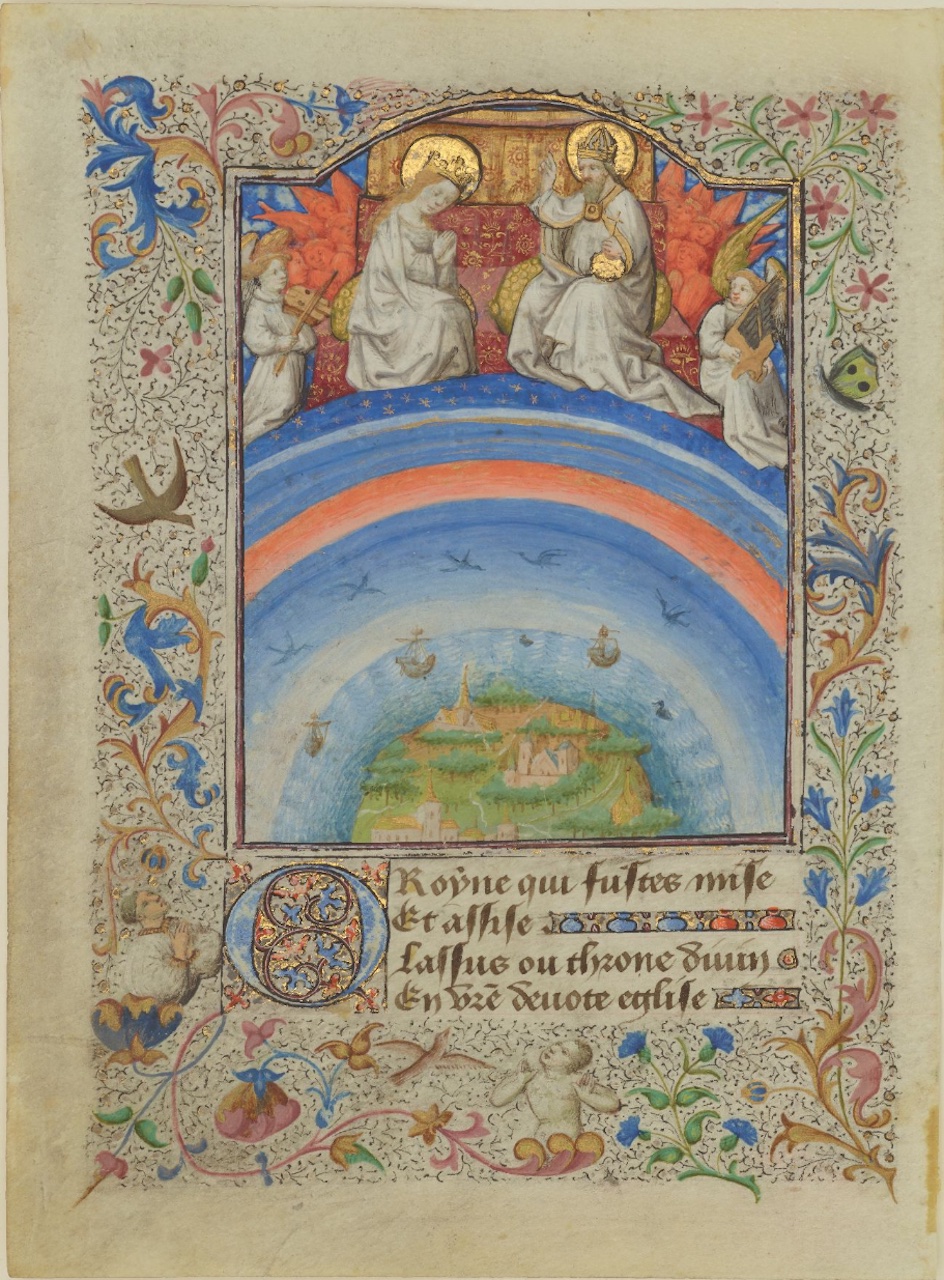 O Royne qui fustes mise
Et assise
Lassus ou throne diuin
En vr̄e deuote eglise